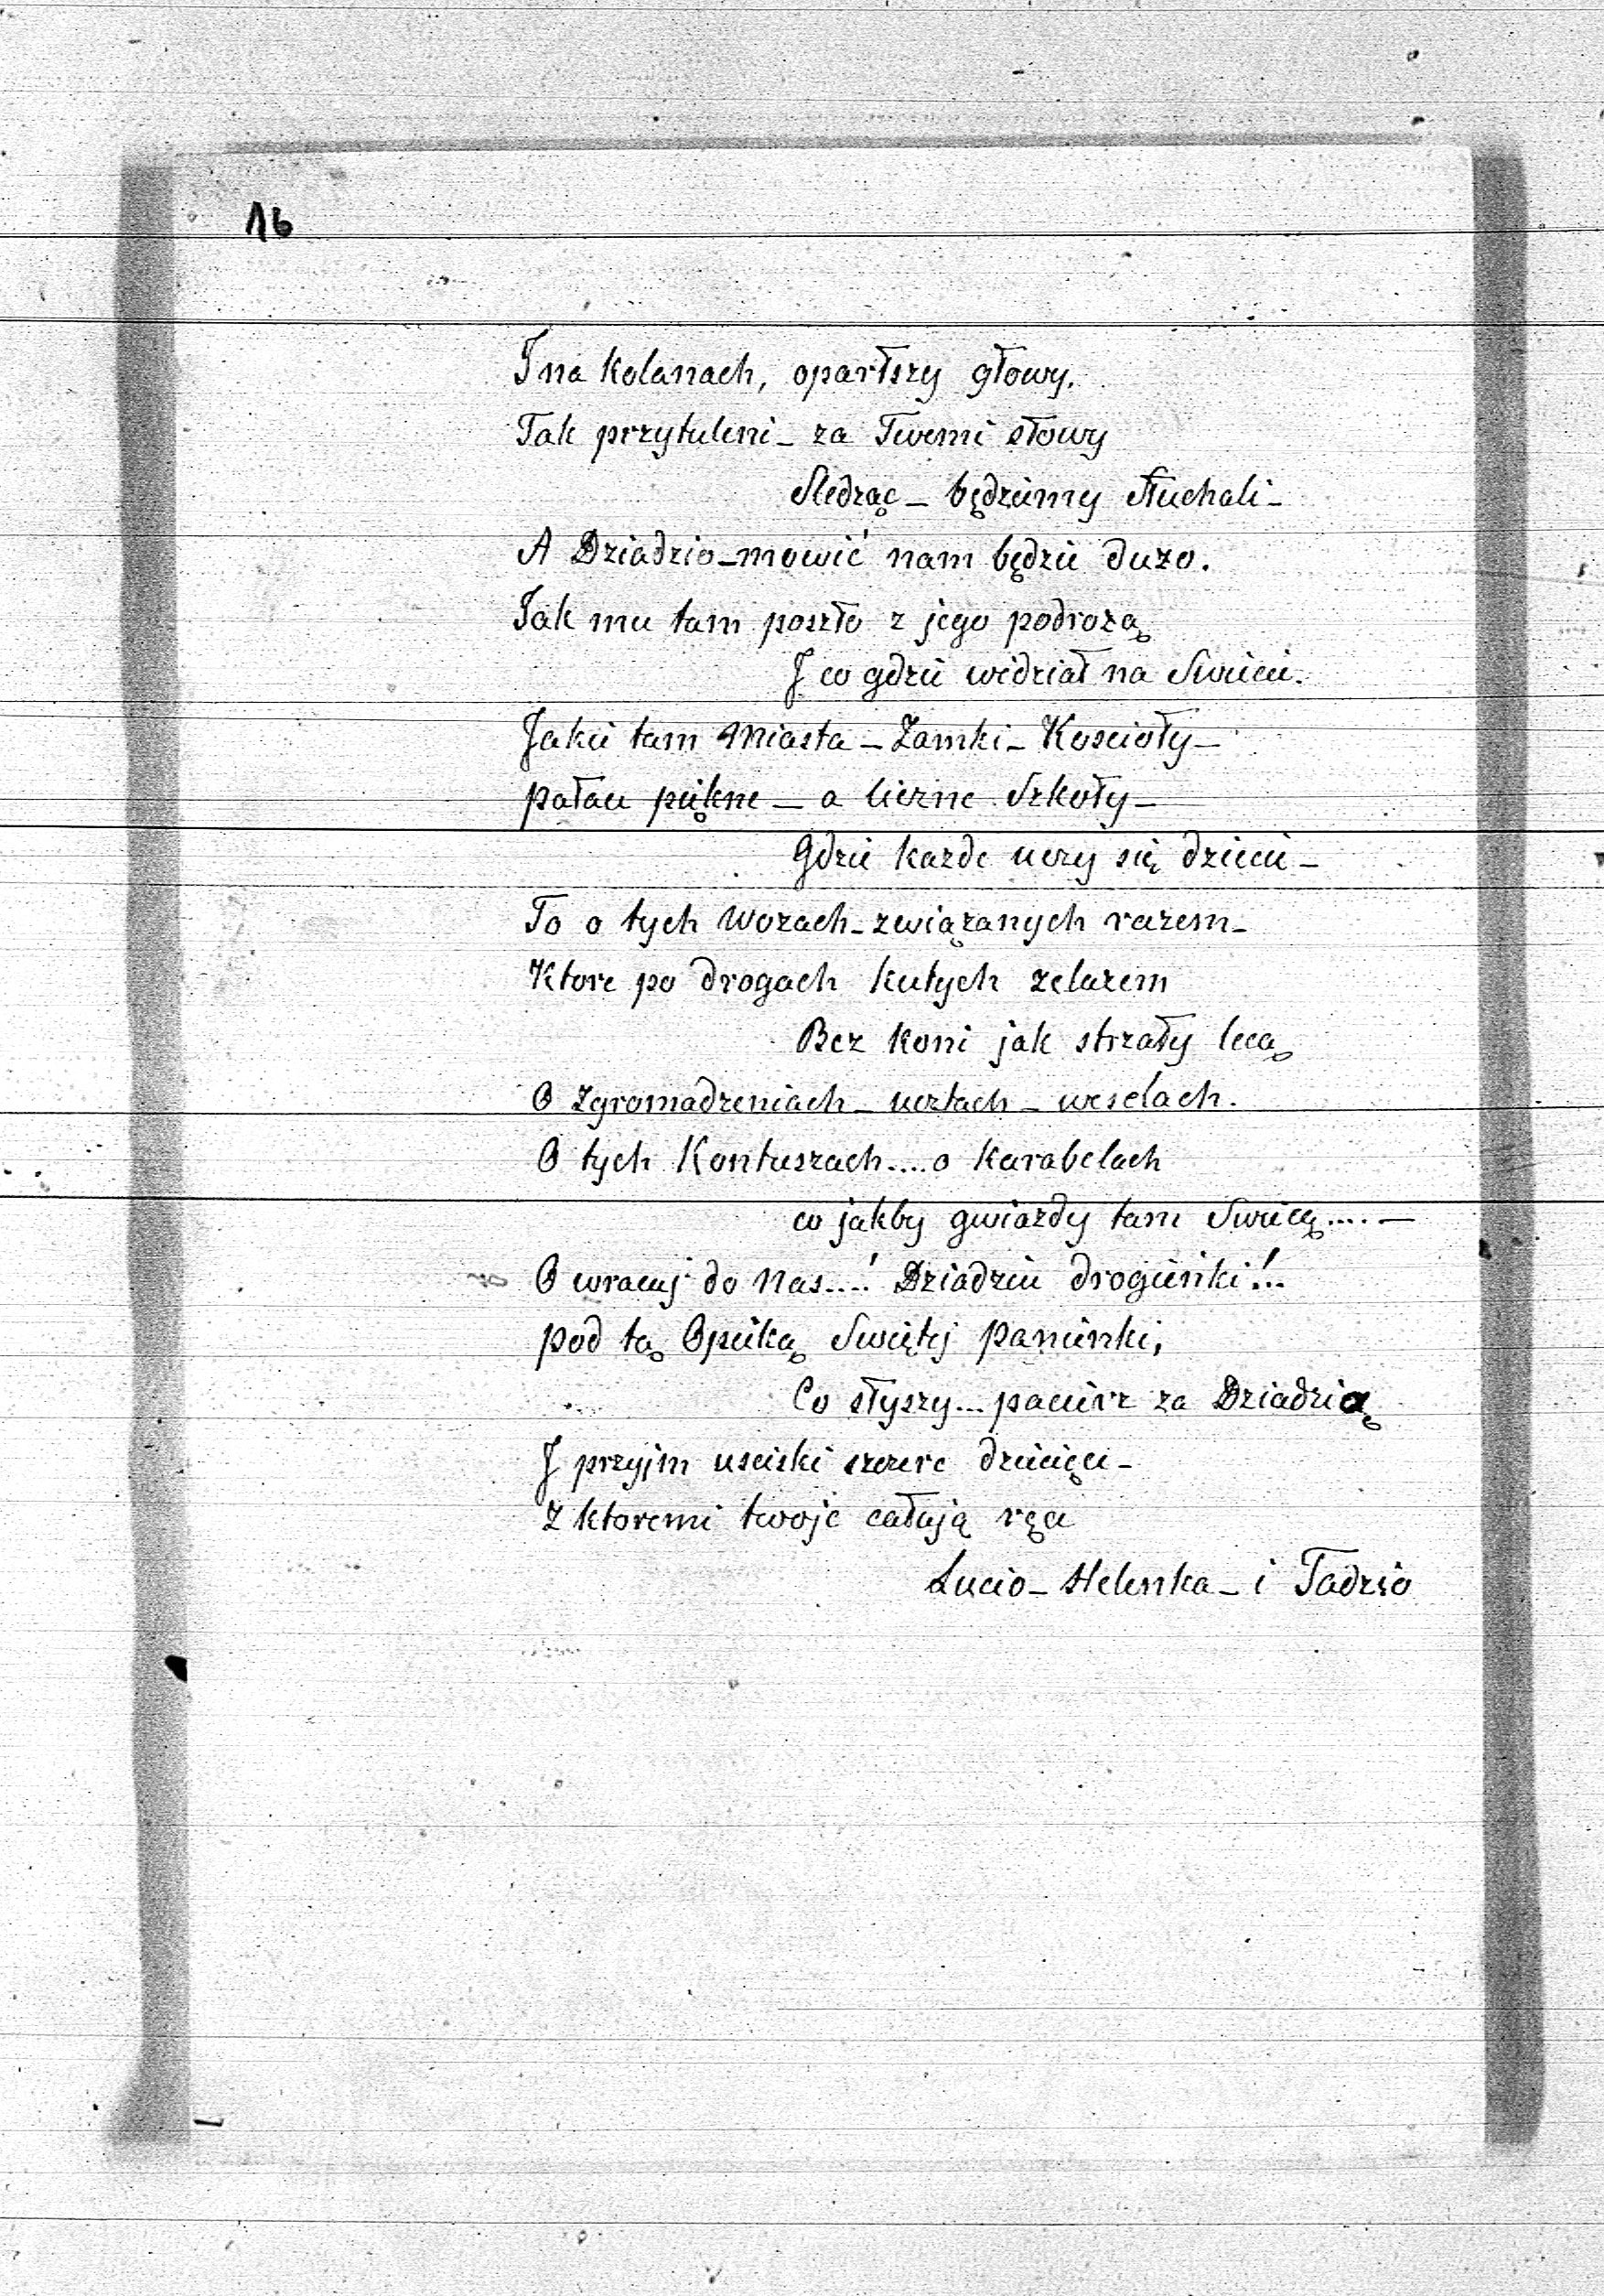 16
I na kolanach, oparłszy głowy.
Tak przytuleni_ za Twemi słowy
Sledząc_ będziemy słuchali_
A Dziadzio_mowić nam będzie duzo.
Jak mu tam poszło z jego podrozą
I co gdzie widział na Swiecie.
Jakie tam Miasta_Zamki_Koscioły_
pałace piękne_a liczne Szkoły_
Gdzie kazde uczy się dziecie_
To o tych Wozach_związanych razem_
Ktore po drogach kutych zelazem
Bez koni jak strzały lecą
O Zgromadzeniach_ucztach_weselach.
O tych Kontuszach....o karabelach
co jakby gwiazdy tam Swiecą....—
O wracaj do Nas....! Dziadziu drogieńki!..
pod tą Opieką Swiętej panienki,
Co słyszy... pacierz za Dziadzią
I przyjm usciski szczere dziecięce_
Z ktoremi twoje całują ręce
Lucio_Helenka_i Tadzio